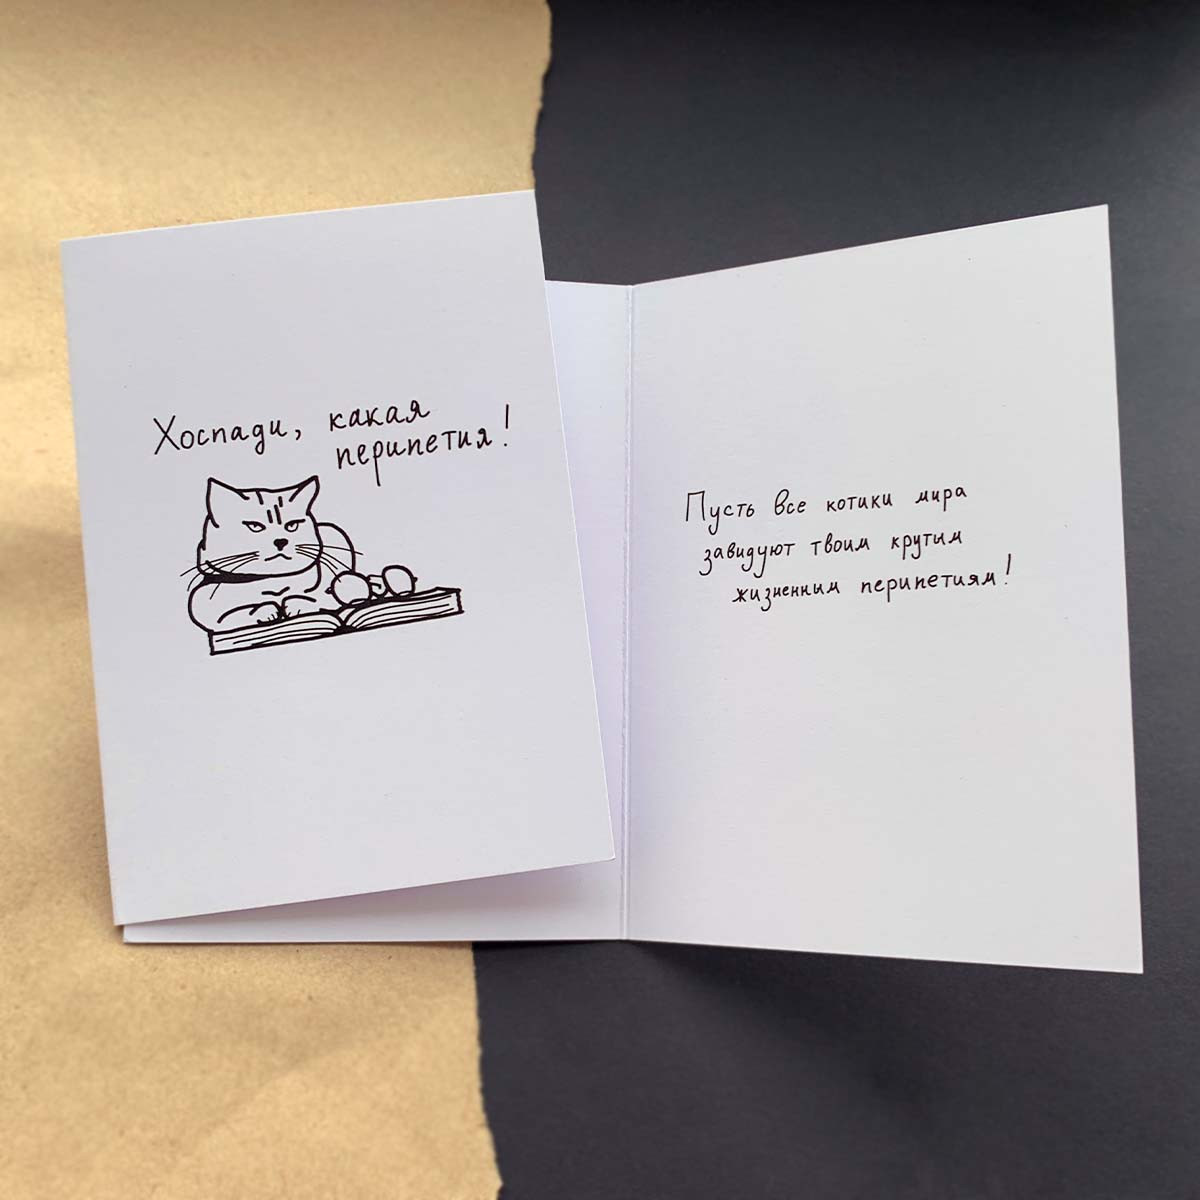 Хоспади, какая
перипетия!
Пусть все котики мира
завидуют твоим крутым
жизненным перипетиям!